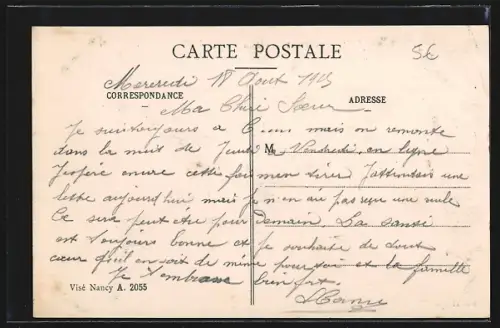 CARTE POSTALE
5€
Mercredi 18 Aout 1915
CORRESPONDANCE
ADRESSE
Ma Chère Soeur
Je suis toujours a mais on remonte
dans la nuit de Jeudi a Vendredi, en ligne
M
J'espère encore cette fois m'en tirer J'attendais une
lettre aujourd'hui mais je n'en ai pas reçue une seule
Ce sera peut être pour Demain. La santé
est toujours bonne et je souhaite de tout
coeur qu'il en soit de même pour toi et la famille
Je t'embrasse bien fort.
Visé Nancy A. 2055